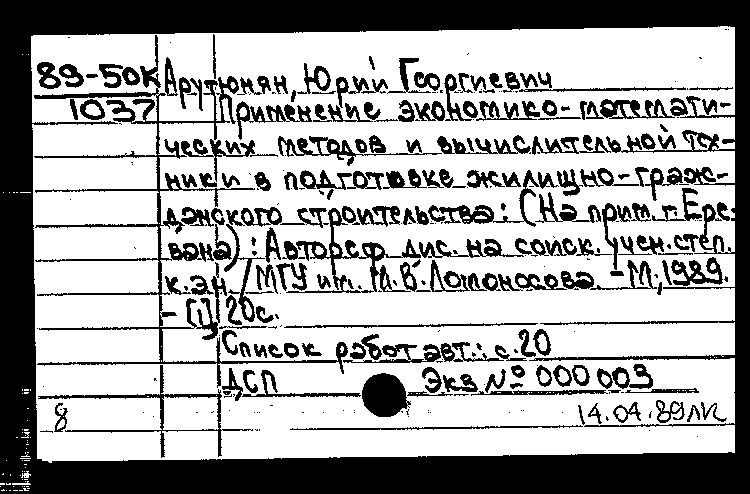 89-50К Арутюнян, Юрий Георгиевич
1037 Применение экономико-математи-
ческих методов и вычислительной тех-
ники в подготовке жилищно-граж-
данского строительства: (На прим. г. Ере-
вана) : Автореф. дис. на соиск. учен. степ.
к.э.н. / МГУ им. М.В. Ломоносова. - М., 1989.
- [1], 20с.
Список работ авт.: с.20
ДСП Экз № 000 003
8 14.04.89